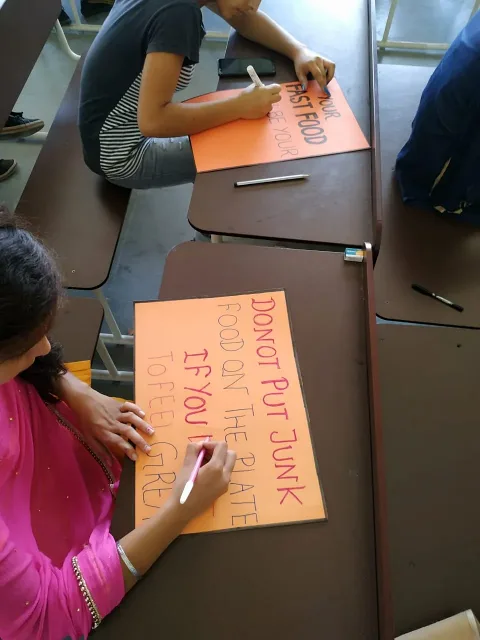 YOUR
FAST FOOD
BE YOUR
DONOT PUT JUNK
FOOD ON THE PLATE
IF YOU
TO FEEL